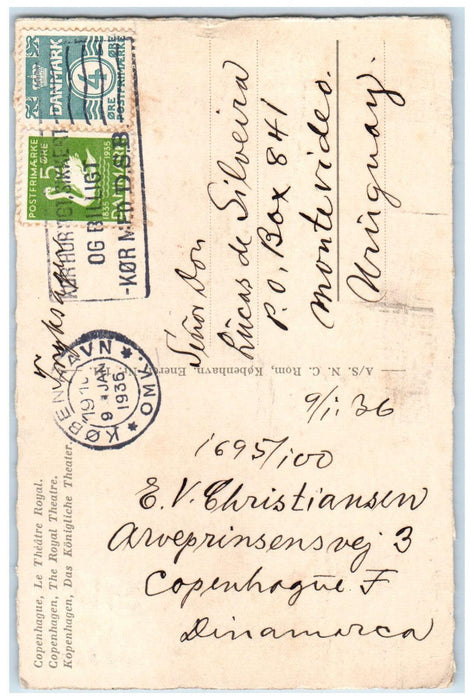 DANMARK
4
ØRE ØRE
POSTFRIMÆRKE
POSTFRIMÆRKE
5 ØRE
1835 1935
DANMARK
OG BILLIGT
-KØR MED D.S.B
Tryksag
KØBENHAVN * OMK. *
9 JAN
1936
Señor Don
Lucas de Silveira
P.O. Box 841
Montevideo.
Uruguay.
A/S. N. C. Rom, København, Eneret.
9/1. 36
1695/100
E. V. Christiansen
Arveprinsensvej 3
Copenhague. F
Dinamarca
Copenhague, Le Théâtre Royal.
Copenhagen, The Royal Theatre.
Kopenhagen, Das Königliche Theater.